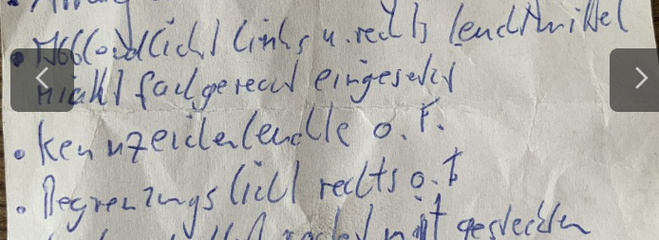 • Abblendlicht links u. rechts Leuchtmittel
nicht fachgerecht eingesetzt
• Kennzeichenleuchte o. F.
• Begrenzungslicht rechts o. F
mit gesteckten